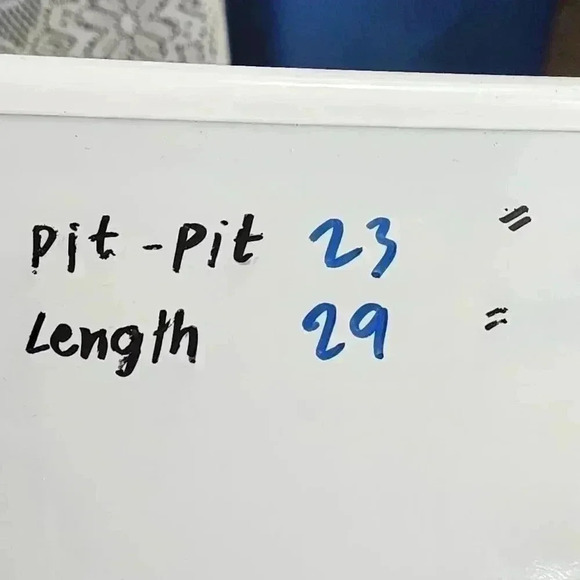 Pit - Pit 23 "
Length 29 "